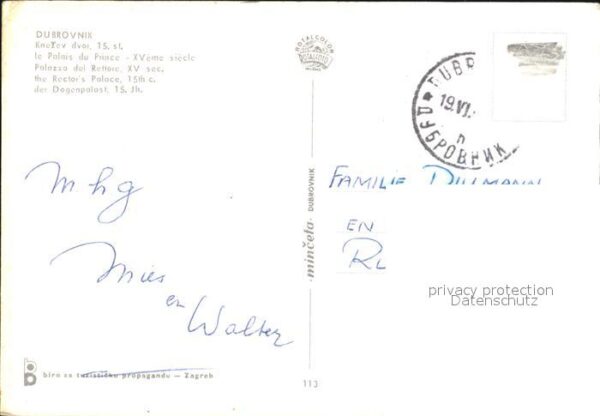 DUBROVNIK
Knežev dvor, 15. st.
le Palais du Prince - XVème siècle
Palazzo del Rettore, XV sec.
the Rector's Palace, 15th c.
der Dogenpalast, 15. Jh.
ROTALCOLOR
DUBR
19.VI.
n
ДУБРОВНИК
M h g
Mies
en
Walter
minčeta DUBROVNIK
FAMILIE DILLMANN
EN
RL
privacy protection
Datenschutz
biro za turističku propagandu — Zagreb
113